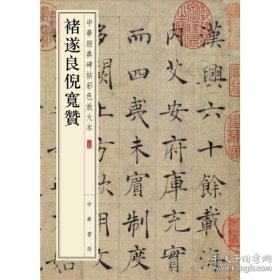 漢興六十餘載
内艾安府庫
夷未賓制度
中華經典碑帖彩色放大本
褚遂良倪寬贊
中華書局